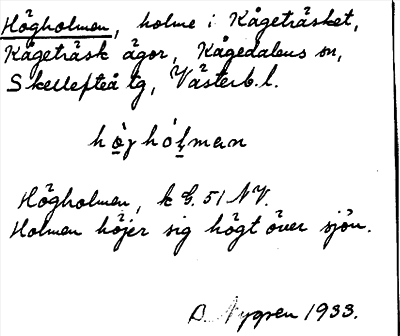 Högholmen, holme i Kågeträsket,
Kågeträsk ägor, Kågedalens sn,
Skellefteå tg, Västerb. l.
hò̱ghóḻman
Högholmen, k G. 51 NV.
Holmen höjer sig högt över sjön.
D. Nygren 1933.